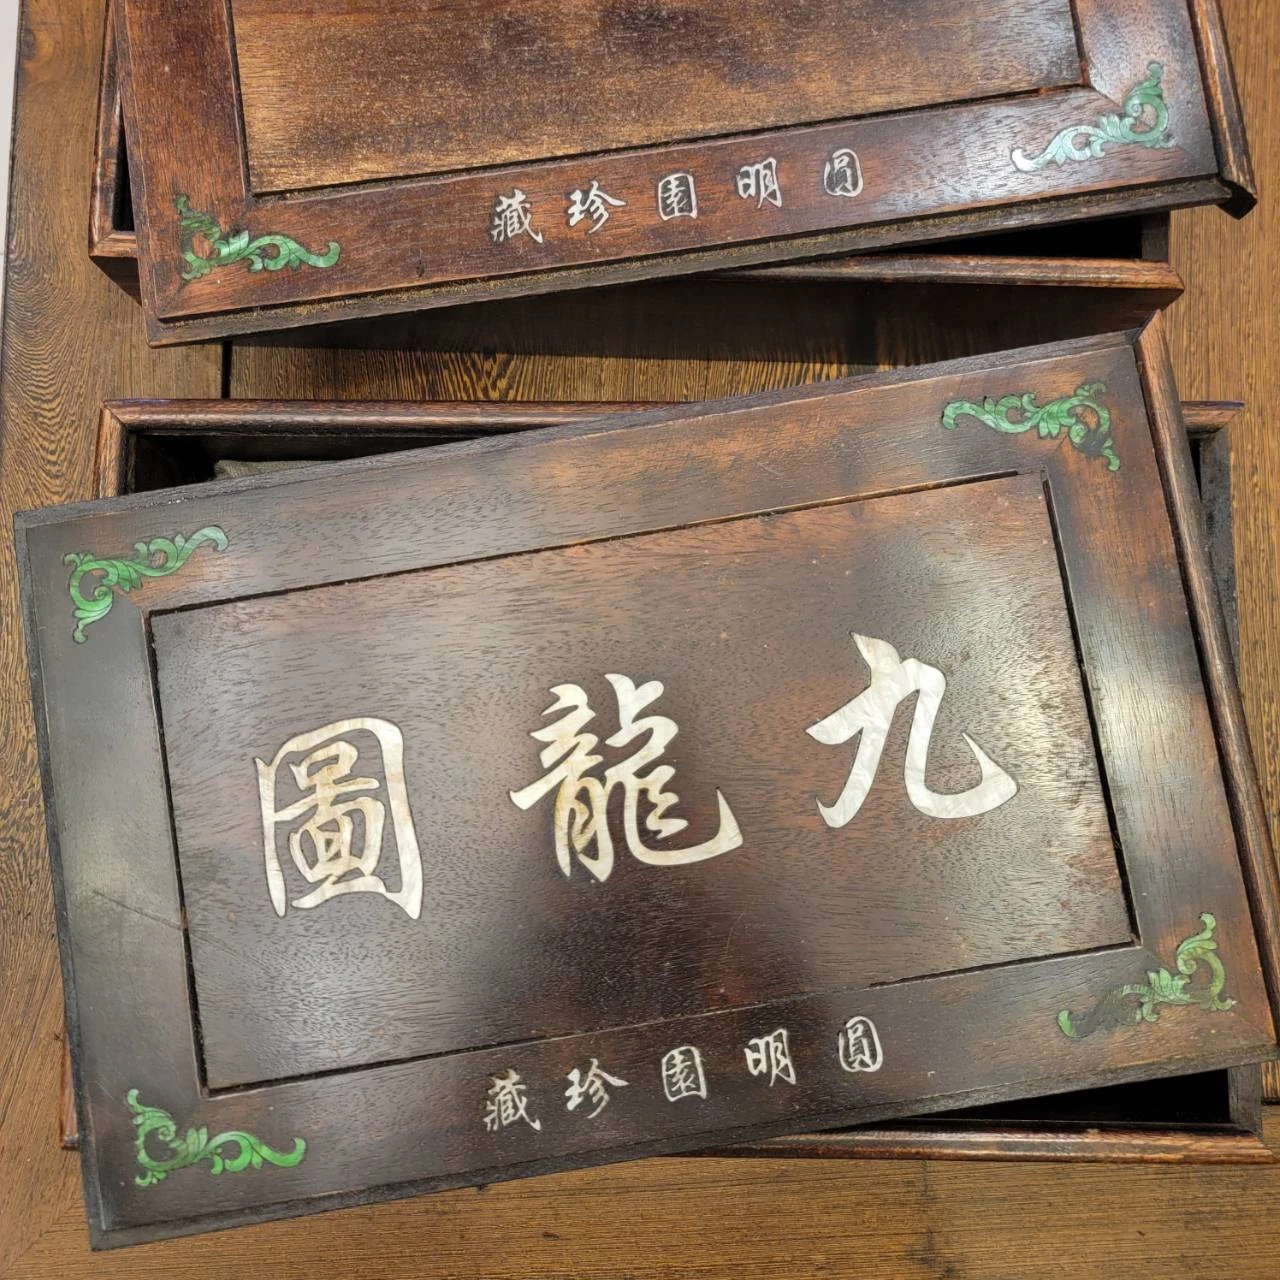 圓明園珍藏
九龍圖
圓明園珍藏